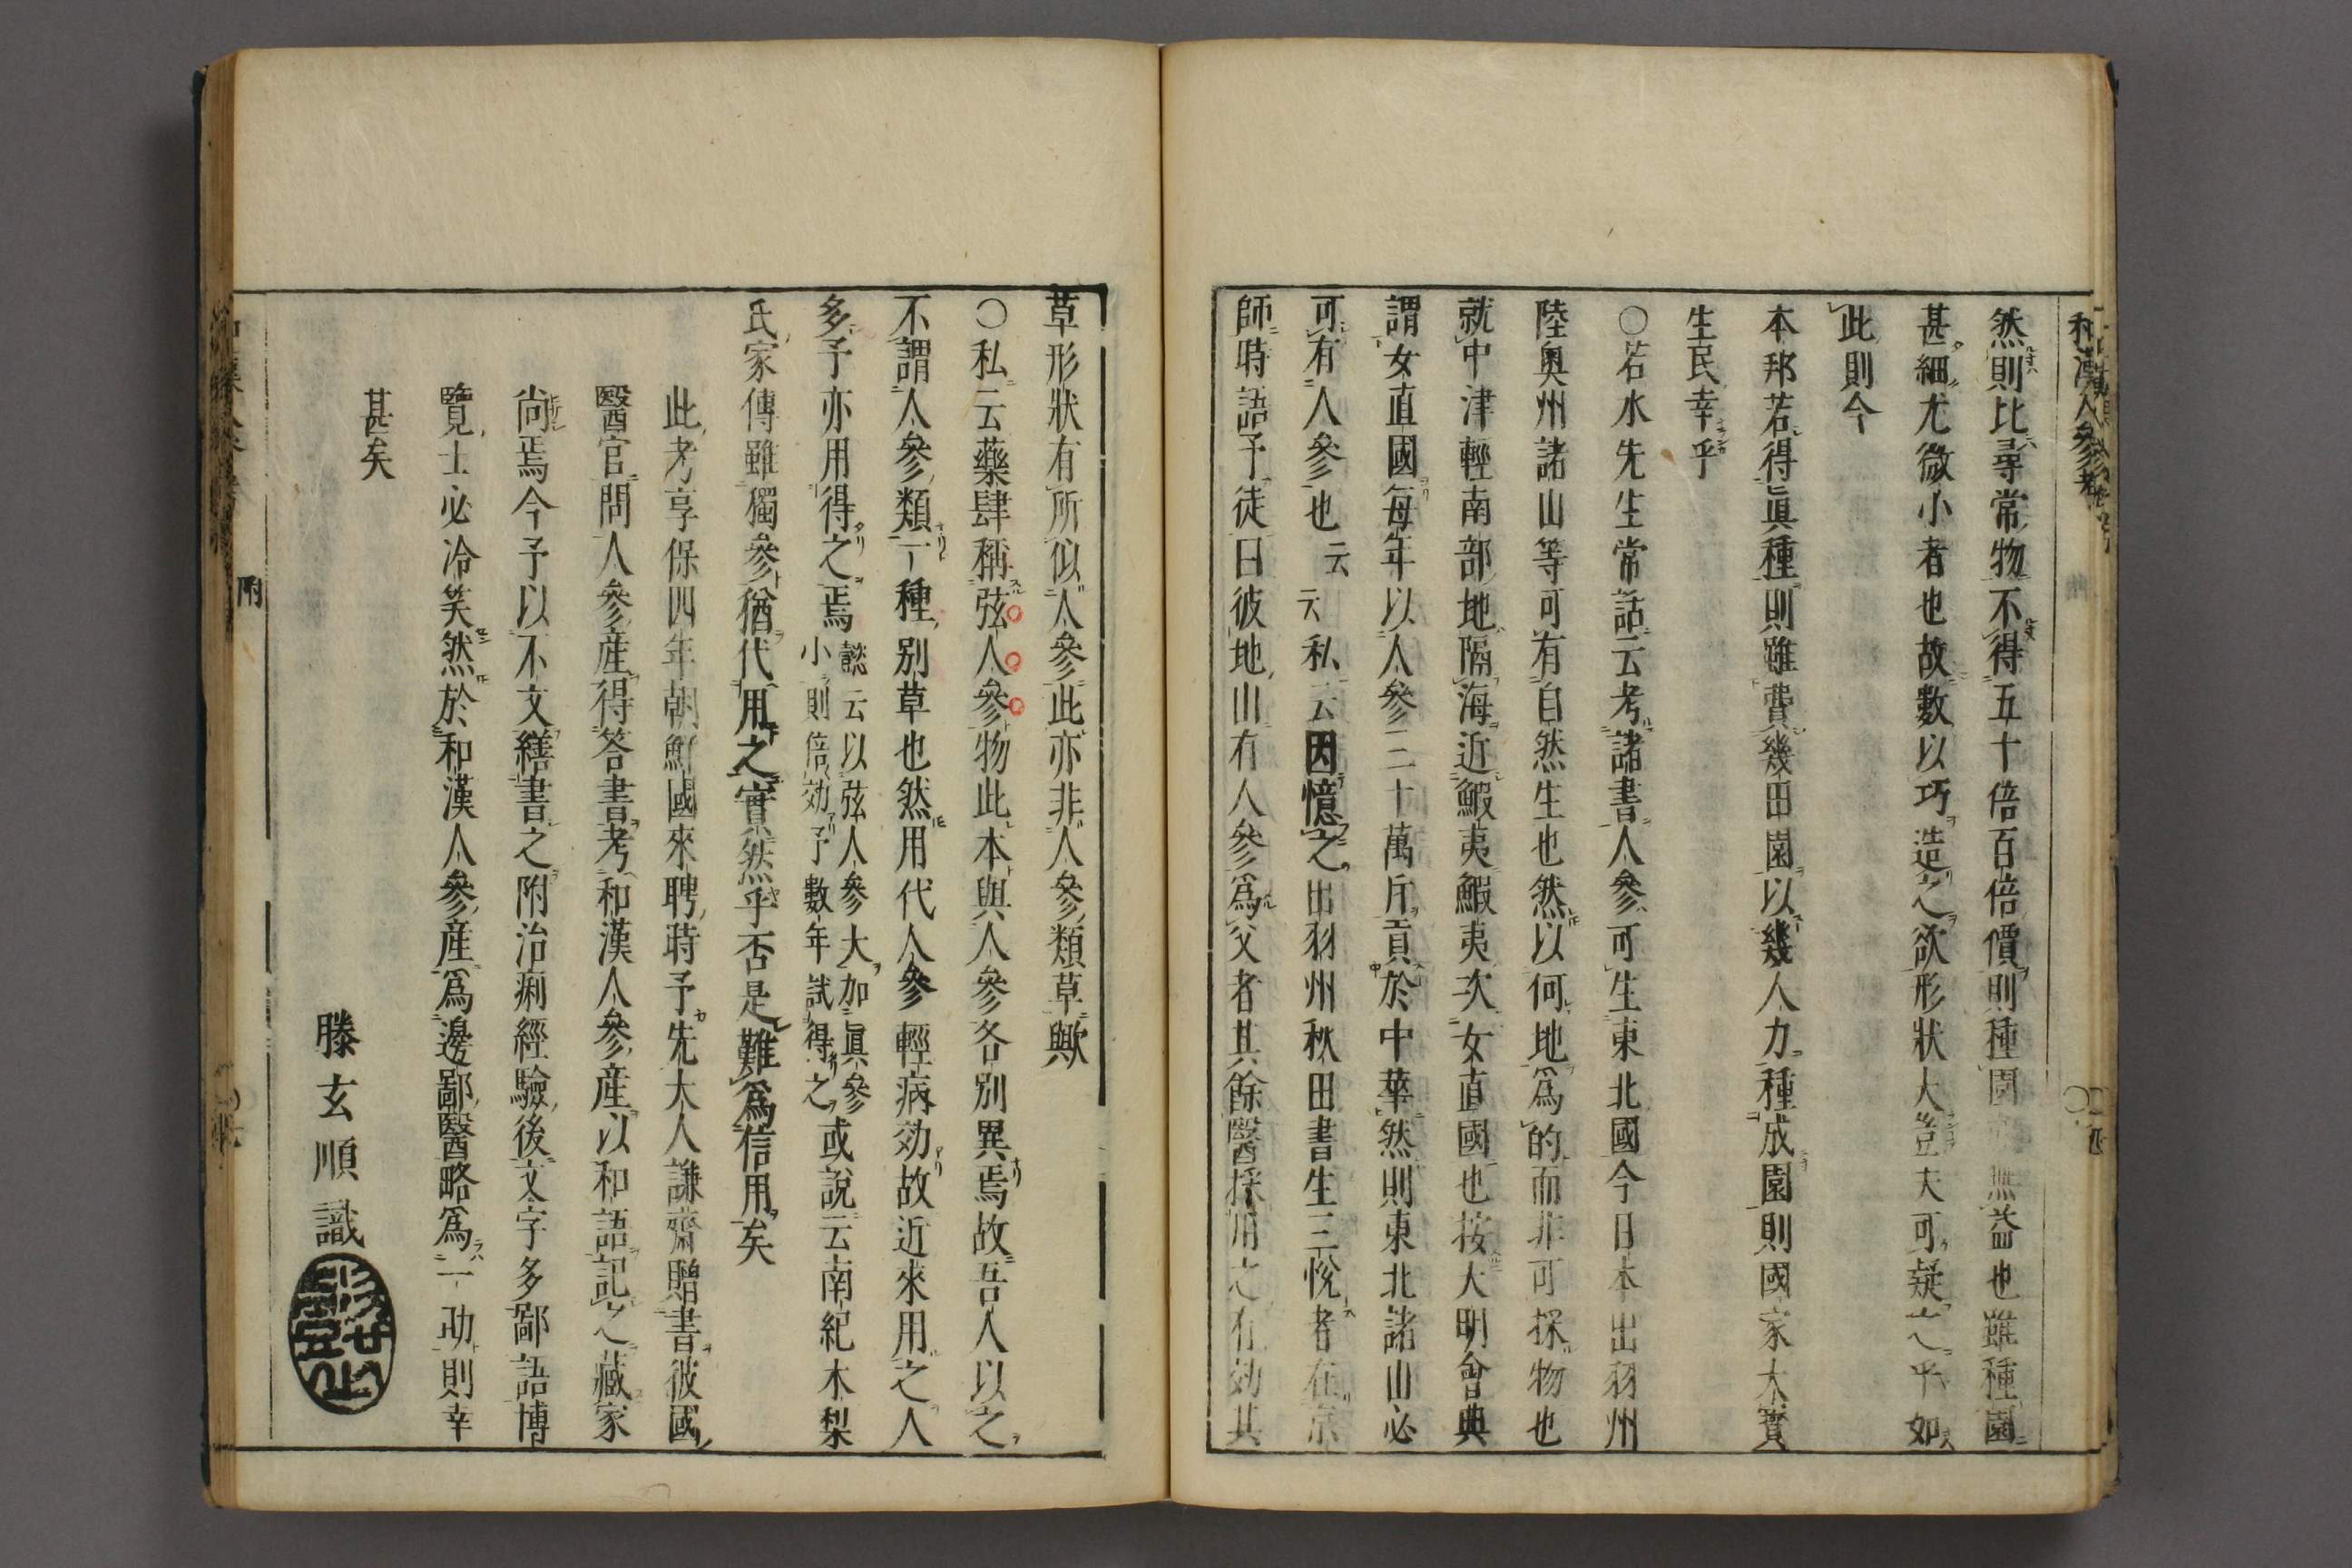 和漢人參考
然則比尋常物不得五十倍百倍價則種園無益也雖種園
甚細尤微小者也故數以巧造之欲形狀大豈夫可疑之乎如
此則今
本邦若得眞種則雖費幾田園以幾人力種成園則國家大寶
生民幸乎
○若水先生常話云考諸書人參可生東北國今日本出羽州
陸奧州諸山等可有自然生也然以何地爲的而非可採物也
就中津輕南部地隔海近鰕夷鰕夷次女直國也按大明會典
謂女直國每年以人參三十萬斤貢於中華然則東北諸山必
可有人參也云云私云因憶之出羽州秋田書生三悅者在京
師時語予徒曰彼地山有人參爲父者其餘醫採用之有効其
草形狀有所似人參此亦非人參類草歟
○私云藥肆稱弦人參物此本與人參各別異焉故吾人以之
不謂人參類一種別草也然用代人參輕病効故近來用之人
多予亦用得之焉
懿云以弦人參大加眞參
小則倍効予數年試得之
或說云南紀木梨
氏家傳雖獨參猶代用之實然乎否是難爲信用矣
此考享保四年朝鮮國來聘時予先大人謙齋贈書彼國
醫官問人參產得答書考和漢人參產以和語記之藏家
尚焉今予以不文繕書之附治痢經驗後文字多鄙語博
覽士必冷笑然於和漢人參產爲邊鄙醫略爲一助則幸
甚矣
滕玄順識
附